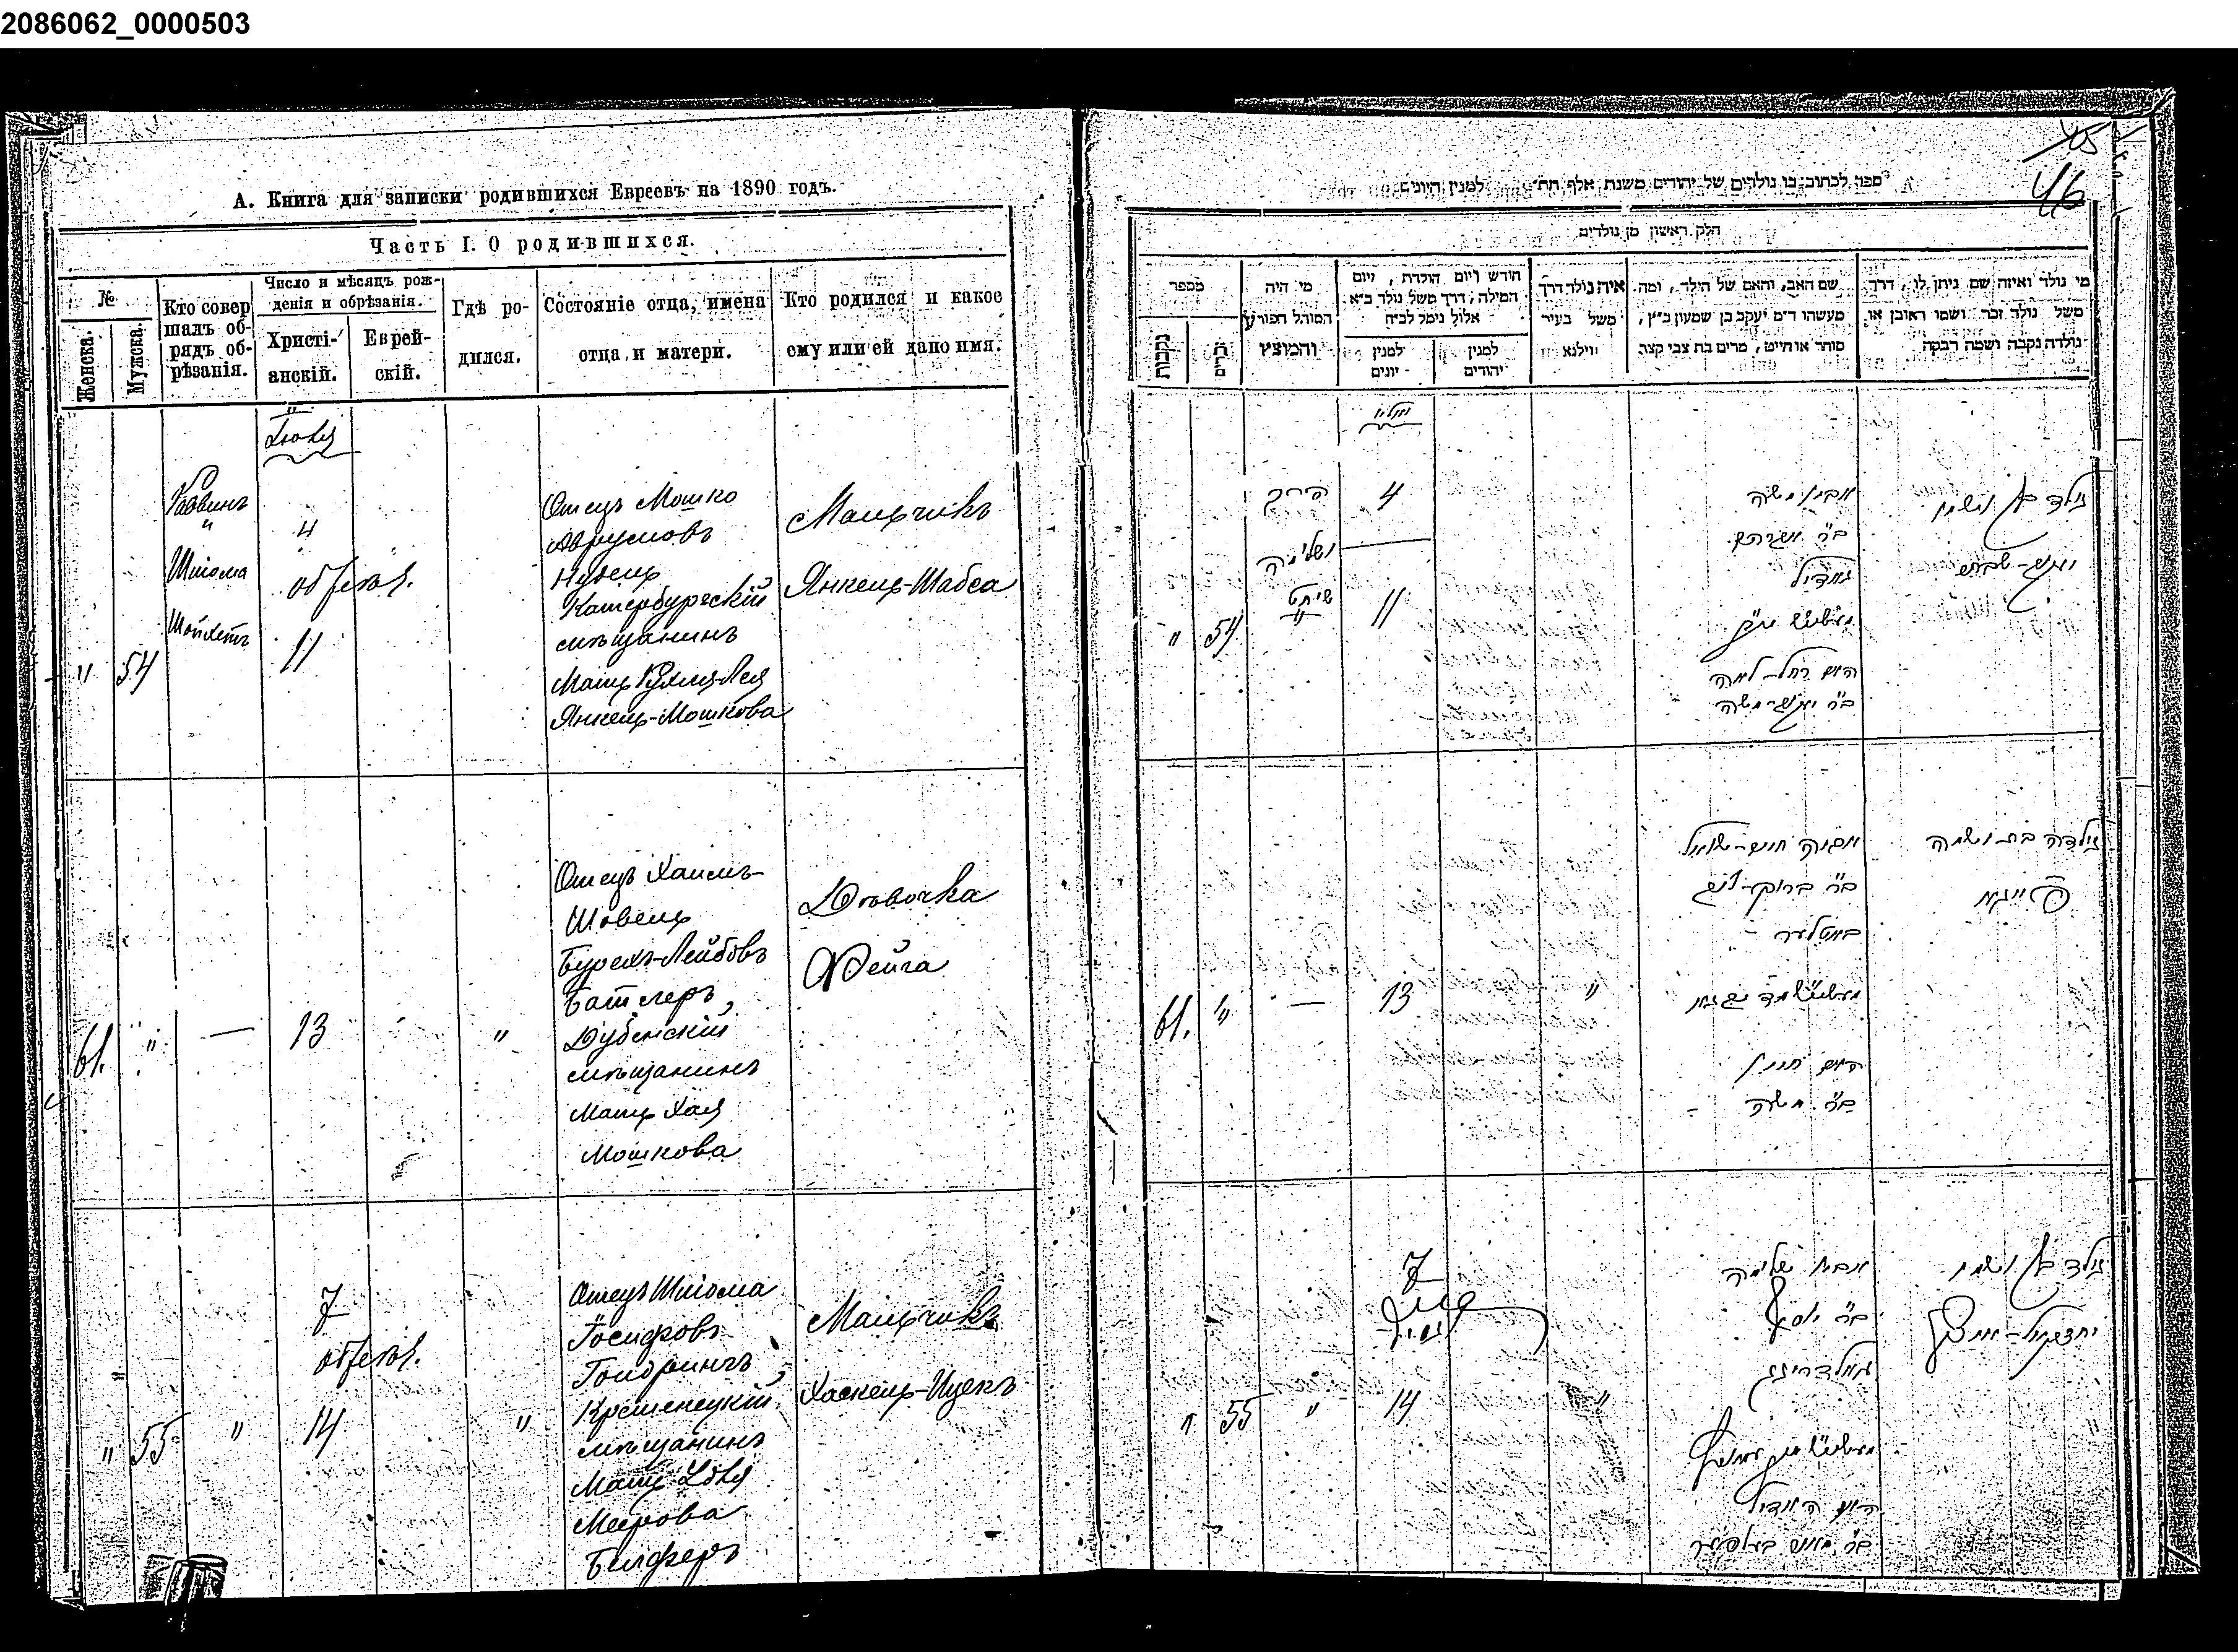 2086062_0000503
А. Книга для записки родившихся Евреевъ на 1890 годъ.
Часть I. О родившихся.
№
Женска.
Мужска.
Кто совер
шалъ об-
рядъ об-
рѣзанія.
Число и мѣсяцъ рож-
денія и обрѣзанія.
Христі-
анскій.
Еврей-
скій.
Гдѣ ро-
дился.
Состояніе отца, имена
отца и матери.
Кто родился и какое
ему или ей дано имя.
Іюля
"
54
Раввинъ
"
Шліома
Шойхетъ
4
обрезан.
11
Отецъ Мошко
Аврумовъ
Катербургскій
мѣщанинъ
Мать Рухля-Лея
Янкель-Мошкова
Мальчикъ
Янкель-Шабса
61.
"
—
13
"
Отецъ Хаимъ-
Шовель
Бурехъ-Лейбовъ
Батлеръ,
Дубенскій
мѣщанинъ
Мать Хая
Мошкова
Дѣвочка
Фейга
"
55
"
7
обрезан.
14
"
Отецъ Шліома
Іосифовъ
Голдрингъ,
Кременецкій
мѣщанинъ
Мать Удля
Меерова
Билферъ
Мальчикъ
Хаскель-Ицекъ
45
46
ספר לכתוב בו נולדים של יהודים משנת אלף תת" למנין היונים
חלק ראשון מן נולדים
מספר
נקבות
זכרים
מי היה
המוהל הפורע
והמוצץ
חודש ויום הולדת, ויום
המילה, דרך משל נולד כ"א
אלול נימל לכ"ח
למנין
יונים
למנין
יהודים
איה נולד דרך
משל בעיר
ווילנא
שם האב, והאם של הילד, ומה
מעשהו ד"מ יעקב בן שמעון כ"ץ,
סוחר או חייט, מרים בת צבי קצב
מי נולד ואיזה שם ניתן לו, דרך
משל נולד זכר ושמו ראובן או
נולדה נקבה ושמה רבקה
יולי
"
54
הרב
ושלימה
שוחט
"
4
11
אביו משה
ב"ר אברהם
האם רחל-לאה
ב"ר יעקב-משה
נולד בן ושמו
יעקב-שבתי
61.
"
—
13
"
אביה חיים-שואל
ב"ר ברוך-ליב
באטלער
האם חיי'
ב"ר משה
נולדה בת ושמה
פייגא
"
55
"
7
14
"
אביו שלימה
ב"ר יוסף
גאלדרינג
האם האדיל
נולד בן ושמו
יחזקאל-איצק